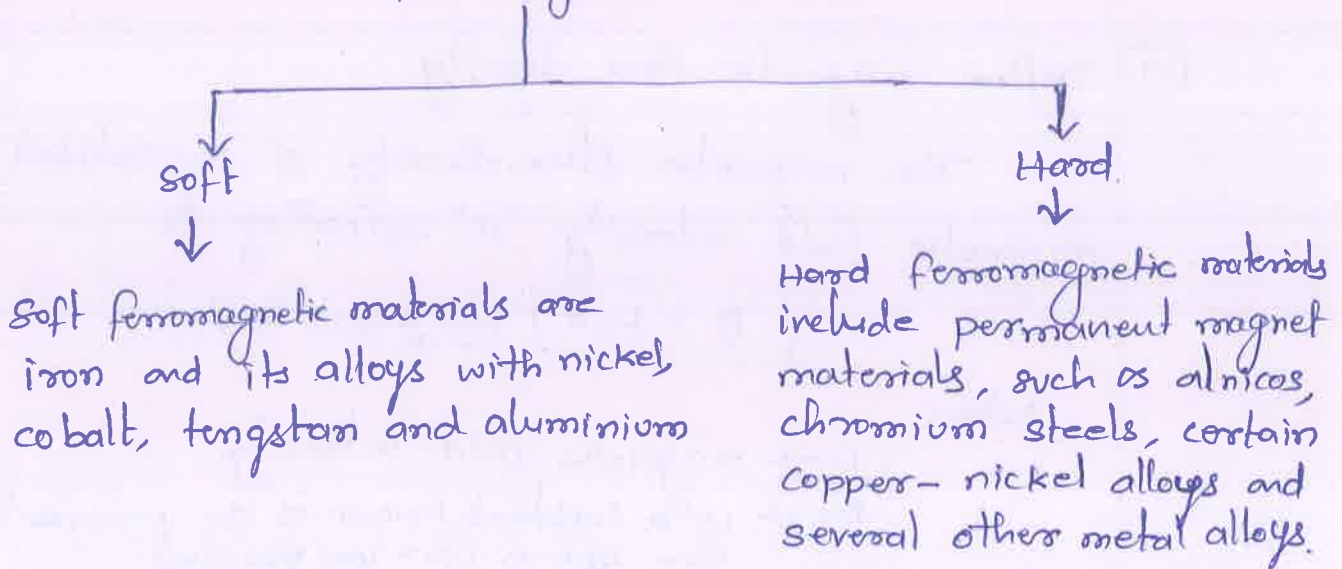 Soft
Hard
Soft ferromagnetic materials are
iron and its alloys with nickel,
cobalt, tengstan and aluminium
Hard ferromagnetic materials
include permanent magnet
materials, such as alnicos,
chromium steels, certain
copper- nickel alloys and
several other metal alloys.